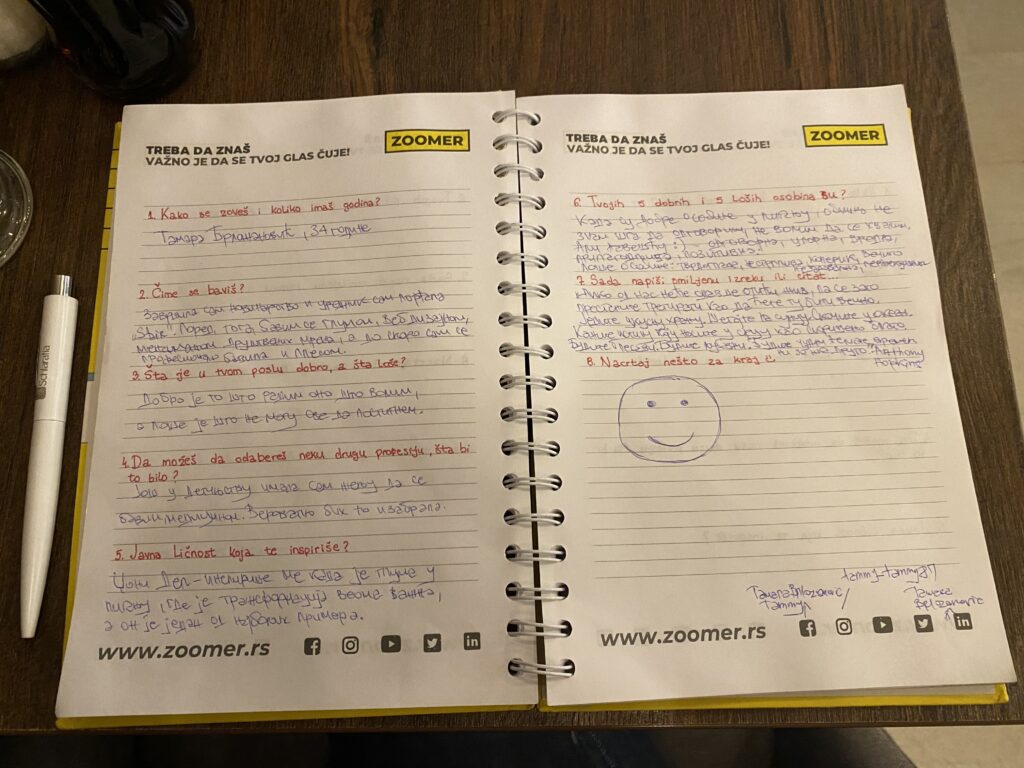 Schrafia
TREBA DA ZNAŠ
VAŽNO JE DA SE TVOJ GLAS ČUJE!
ZOOMER
1. Kako se zoveš i koliko imaš godina?
Тамара, 34 године
2. Čime se baviš?
Завршила сам новинарство и уредник сам портала
Поред тога, бавим се глумом, веб дизајном,
менаџментом друштвених мрежа, а до скоро сам се
професионално бавила и плесом.
3. Šta je u tvom poslu dobro, a šta loše?
Добро је то што радим оно што волим,
а лоше је што не могу све да постигнем.
4. Da možeš da odabereš neku drugu profesiju, šta bi
to bilo?
Још у детињству имала сам жељу да се
бавим медицином. Вероватно бих то изабрала.
5. Javna Ličnost koja te inspiriše?
Џони Деп - инспирише ме када је глума у
питању, где је трансформација веома важна,
а он је један од најбољих примера.
www.zoomer.rs
TREBA DA ZNAŠ
VAŽNO JE DA SE TVOJ GLAS ČUJE!
ZOOMER
6. Tvojih 5 dobrih i 5 loših osobina su?
Када су добре особине у питању, обично не
знам шта да одговорим, не волим да се хвалим.
Али :) - одговорна, упорна, вредна,
позитивна.
Лоше особине:
7. Sada napiši omiljenu izreku ili citat.
Нико од нас неће одавде отићи жив, па се зато
као да ћете ту бити вечно.
Једите укусну храну. Шетајте по сунцу. Скочите у океан.
Кажите истину коју носите у срцу као скривено благо.
ни за шта друго. Anthony
Hopkins
8. Nacrtaj nešto za kraj
tammy_tammy87
Tammy
www.zoomer.rs